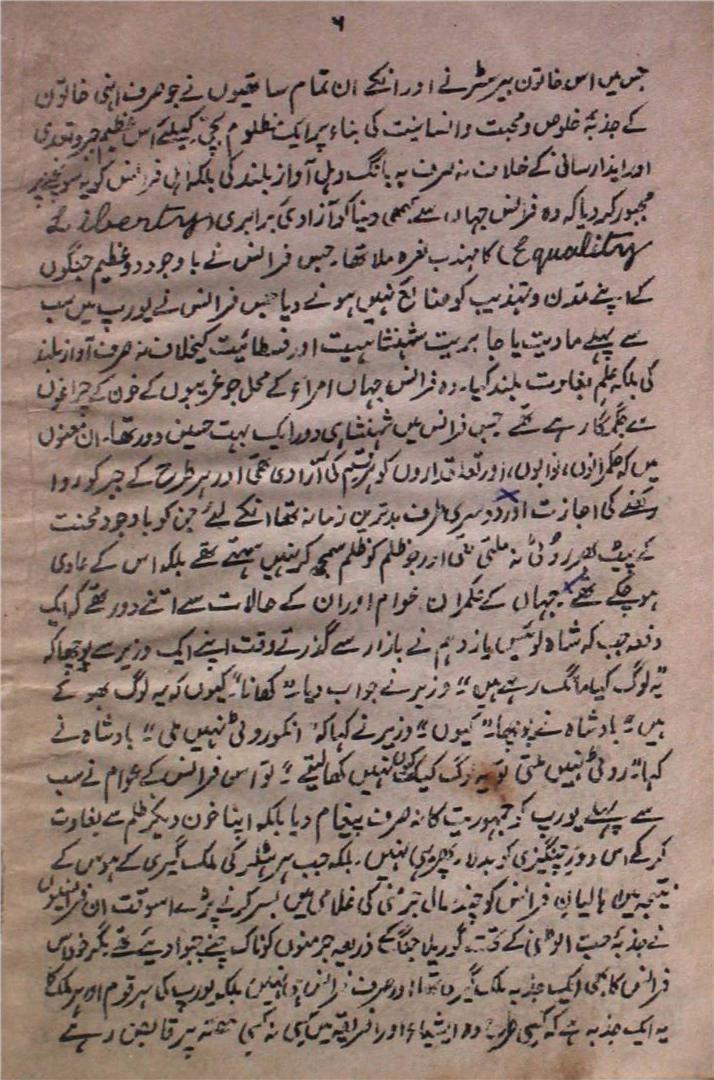 ۶
جس میں اس خاتون بیرسٹر نے اور انکے ان تمام ساتھیوں نے جو صرف اپنی خاتون
کے جذبۂ خلوص و محبت و انسانیت کی بناء پر ایک مظلوم بچی کیلئے اس عظیم جبر و تعدی
اور ایذارسانی کے خلاف نہ صرف بہ بانگ دہل آواز بلند کی بلکہ اہل فرانس کو یہ سوچنے پر
مجبور کر دیا کہ وہ فرانس جہاں سے کبھی دنیا کو آزادی برابری (Liberty
Equality) کا مہذب نعرہ ملا تھا۔ جس فرانس نے باوجود دو عظیم جنگوں
کے اپنے تمدن و تہذیب کو ضائع نہیں ہونے دیا جس فرانس نے یورپ میں سب
سے پہلے مادیت یا جابریت شہنشاہیت اور فسطائیت کیخلاف نہ صرف آواز بلند
کی بلکہ علم بغاوت بلند کیا۔ وہ فرانس جہاں امراء کے محل جو غریبوں کے خون کے چراغوں
سے جگمگا رہے تھے جس فرانس میں شہنشاہی دور ایک بہت حسین دور تھا۔ ان معنوں
میں کہ حکمرانوں، نوابوں، اور تعلقداروں کو ہر قسم کی آزادی تھی اور ہر طرح کے جبر کو روا
رکھنے کی اجازت اور دوسری طرف بدترین زمانہ تھا انکے لئے جن کو باوجود محنت
کے پیٹ بھر روٹی نہ ملتی تھی اور جو ظلم کو ظلم سمجھ کر نہیں سہتے تھے بلکہ اس کے عادی
ہو چکے تھے۔ جہاں کے حکمران عوام اور ان کے حالات سے اتنے دور تھے کہ ایک
دفعہ جب کہ شاہ لوئیس یازدہم نے بازار سے گذرتے وقت اپنے ایک وزیر سے پوچھا کہ
"یہ لوگ کیا مانگ رہے ہیں" وزیر نے جواب دیا "کھانا" کیوں کہ یہ لوگ بھوکے
ہیں" بادشاہ نے پوچھا "کیوں" وزیر نے کہا کہ "انکو روٹی نہیں ملی" بادشاہ نے
کہا "روٹی نہیں ملتی تو یہ لوگ کیک کیوں نہیں کھا لیتے" تو اسی فرانس کے عوام نے سب
سے پہلے یورپ کو جمہوریت کا نہ صرف پیغام دیا بلکہ اپنا خون دیکر ظلم سے بغاوت
کر کے اس دور چنگیزی کو بدلا۔ پھر یہی نہیں۔ بلکہ جب ہر ہٹلر کی ملک گیری کے ہوس کے
نتیجہ میں اہالیان فرانس کو چند سال جرمنی کی غلامی میں بسر کرنے پڑے اسوقت ان فرانسیسیوں
نے جذبۂ حب الوطنی کے تحت گوریلا جنگ کے ذریعہ جرمنوں کو ناک چنے چبوا دیئے تھے مگر خود اس
فرانس کا بھی ایک جذبہ ملک گیری تھا اور صرف فرانس ہی نہیں بلکہ یورپ کی ہر قوم اور ہر ملک کا
یہ ایک جذبہ ہے کہ کسی طرح وہ ایشیاء اور افریقہ میں کسی نہ کسی حصہ پر قابض رہے